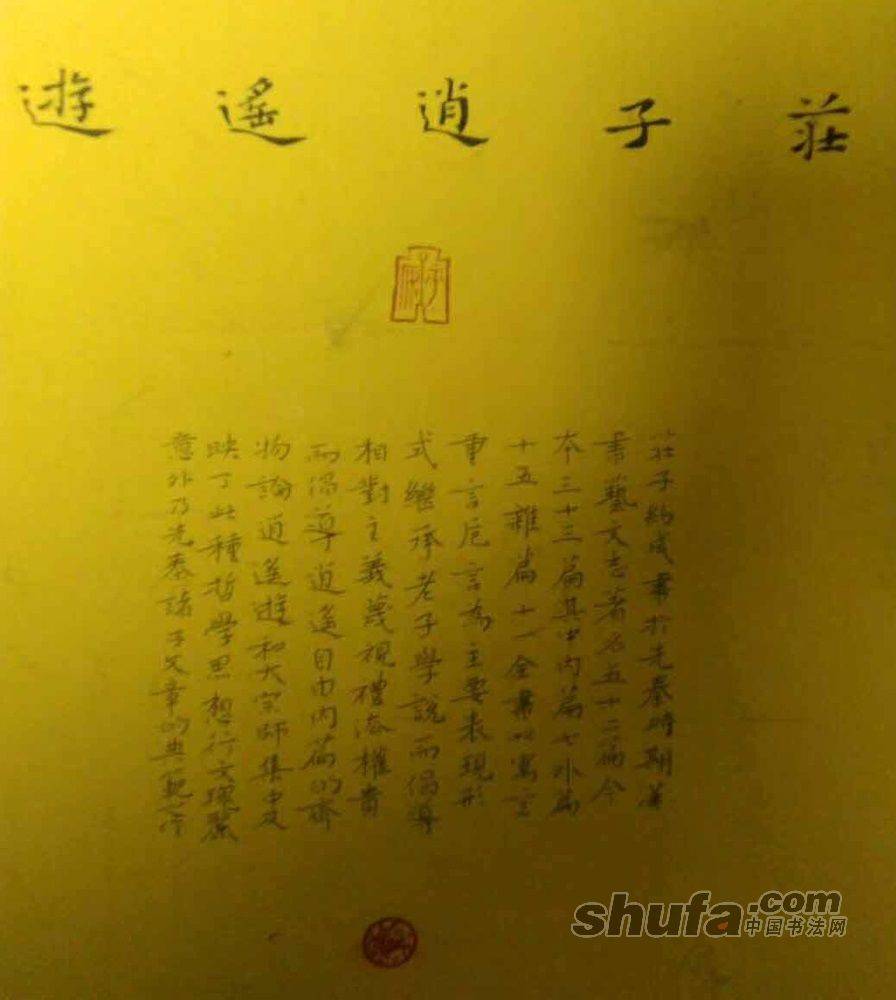 莊子逍遙遊
莊子約成書於先秦時期漢
書藝文志著名五十二篇今
本三十三篇其中内篇七外篇
十五雜篇十一全書以寓言
重言巵言為主要表現形
式繼承老子學說而倡導
相對主義蔑視禮法權貴
而倡導逍遙自由内篇的齊
物論逍遙遊和大宗師集中反
映了此種哲學思想行文瑰麗
意外乃先秦諸子文章的典範之作
shufa.com
中国书法网